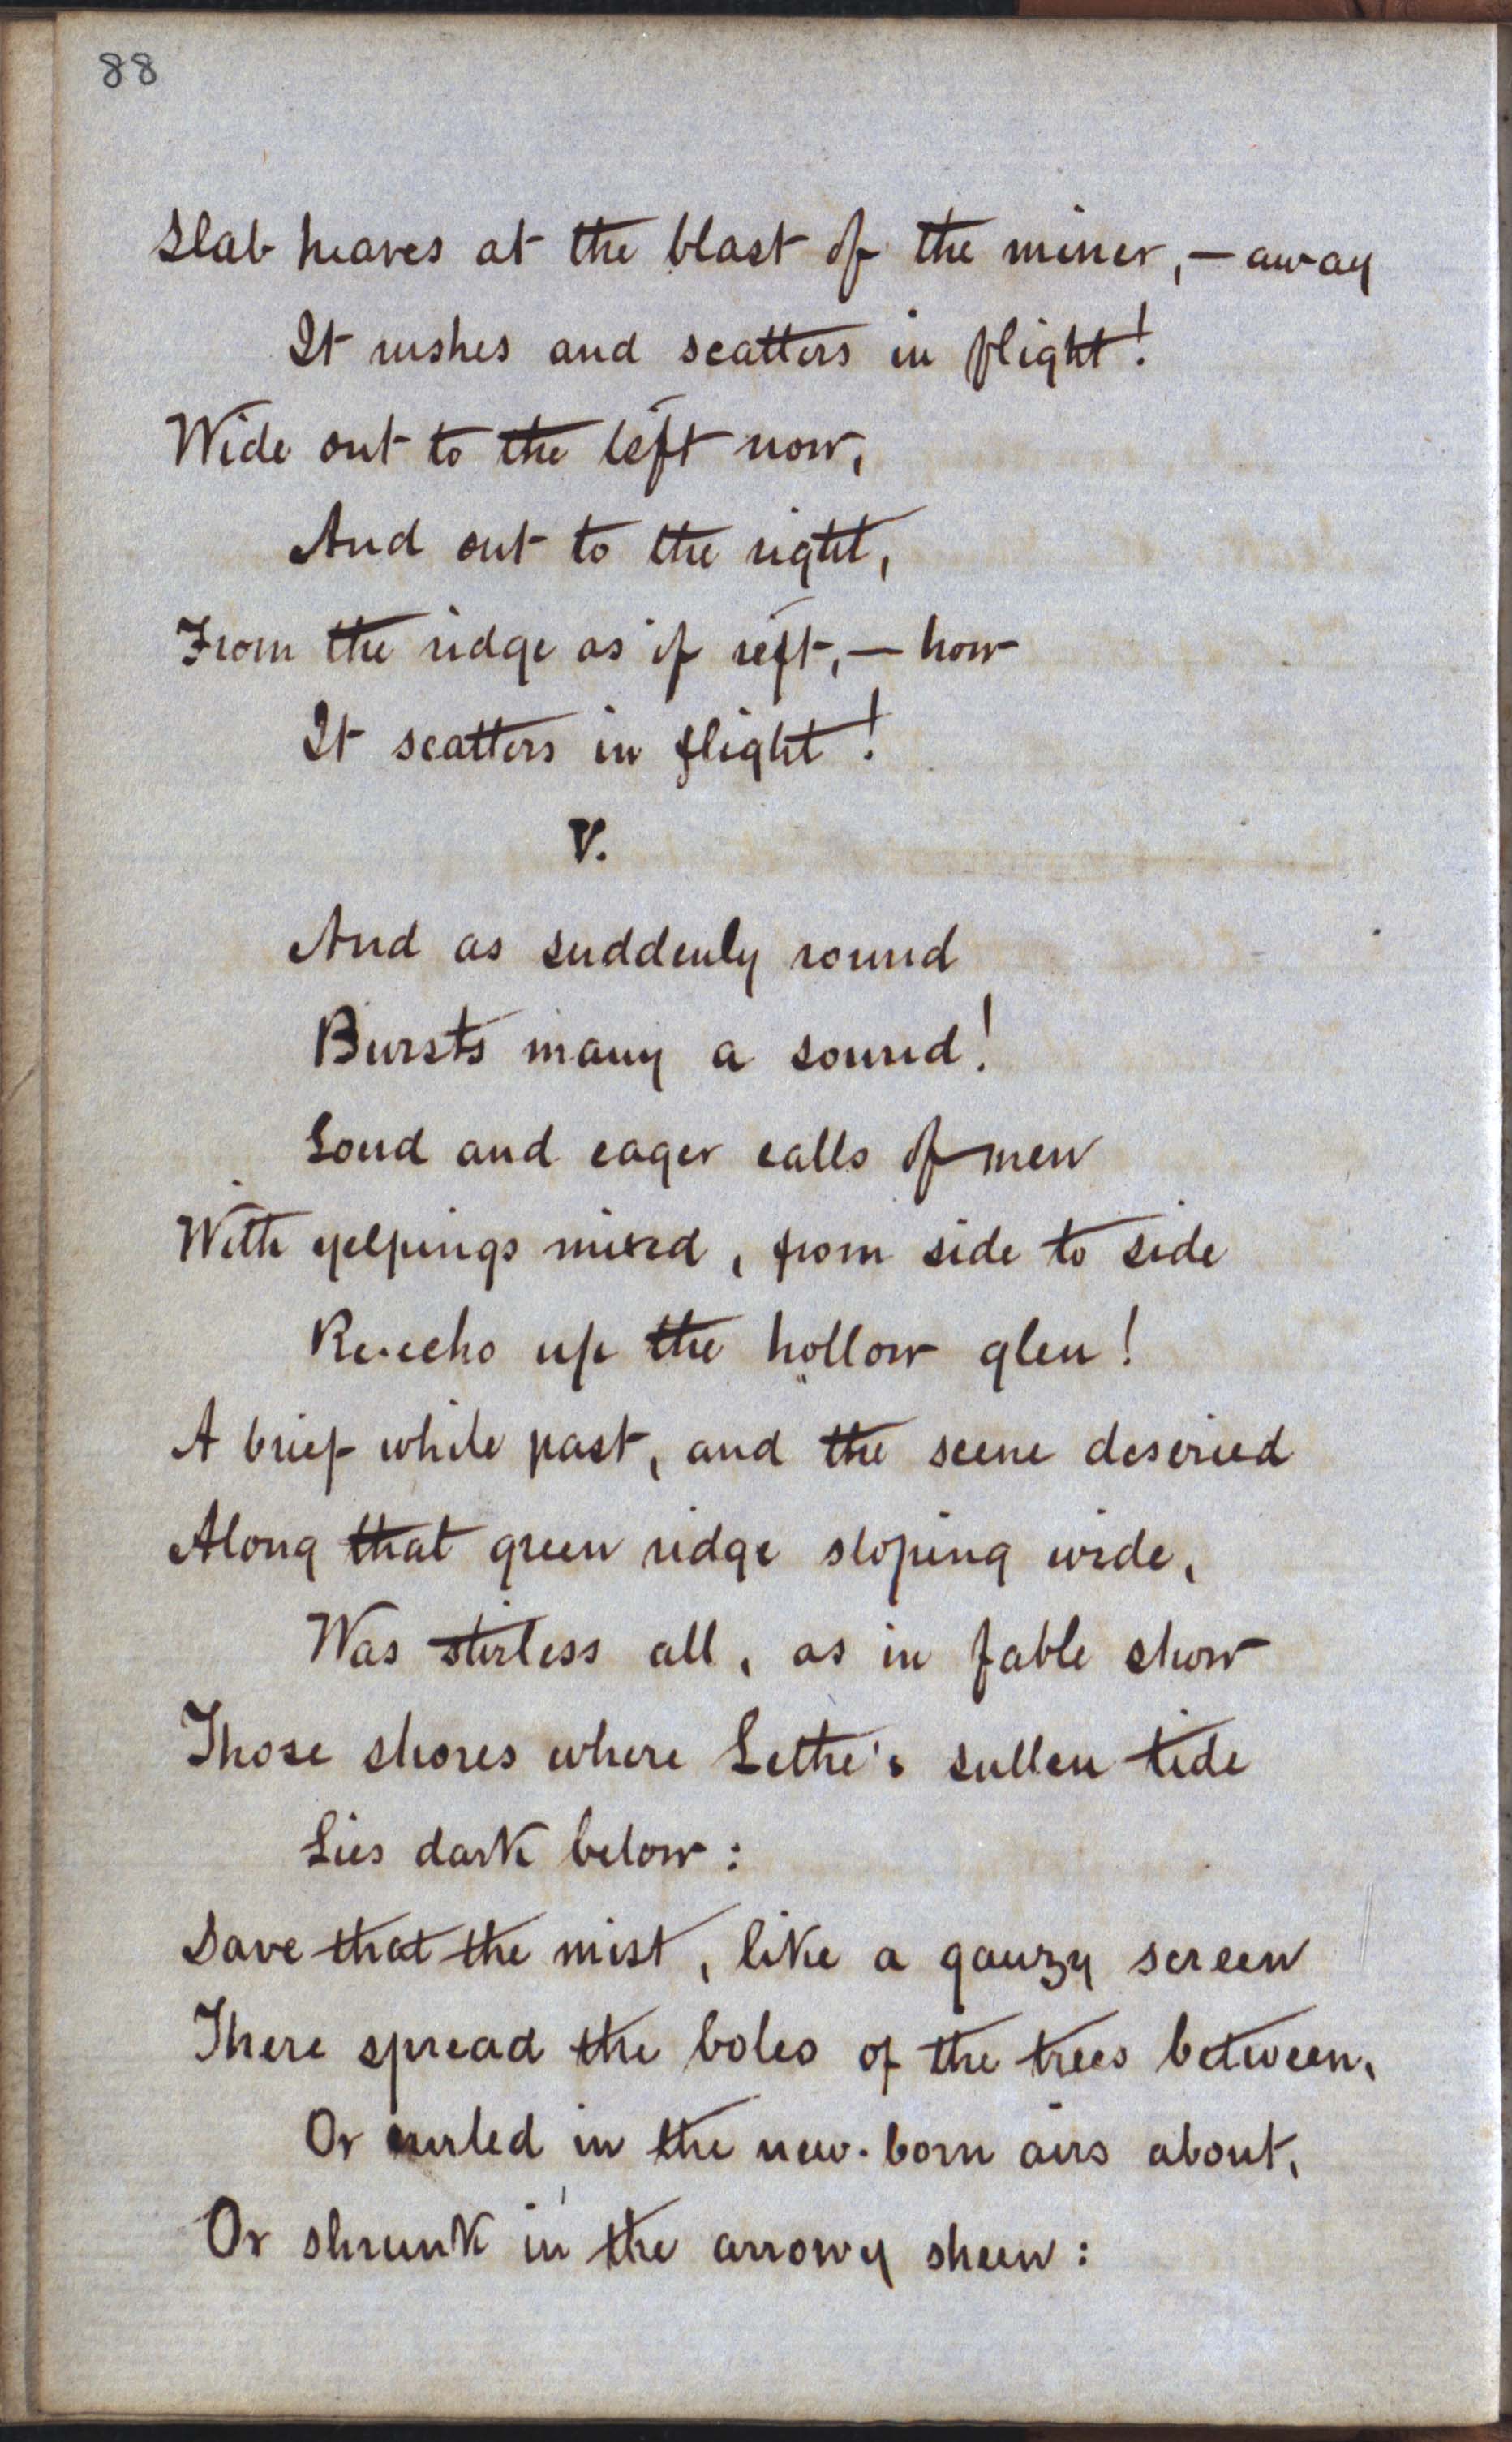 88
Slab heaves at the blast of the miner, — away
It rushes and scatters in flight!
Wide out to the left now,
And out to the right,
From the ridge as if reft, — how
It scatters in flight!
V.
And as suddenly round
Bursts many a sound!
Loud and eager calls of men
With yelpings mixed, from side to side
Re-echo up the hollow glen!
A brief while past, and the scene descried
Along that green ridge sloping wide,
Was stirless all, as in fable show
Those shores where Lethe's sullen tide
Lies dark below:
Save that the mist, like a gauzy screen
There spread the boles of the trees between,
Or curled in the new-born airs about,
Or shrunk in the arrowy sheen: